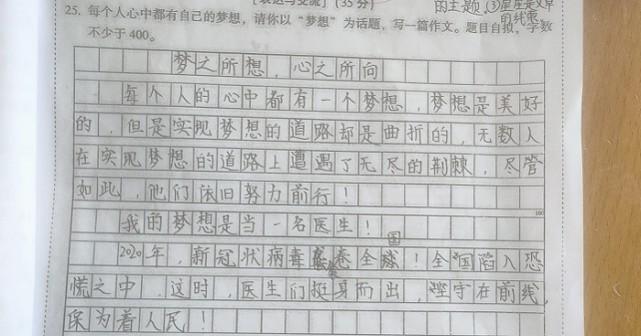 [表达与交流] (35分)
的主题,③
25. 每个人心中都有自己的梦想,请你以“梦想”为话题,写一篇作文。题目自拟,字数
不少于400。
梦之所想,心之所向
每个人的心中都有一个梦想,梦想是美好
的,但是实现梦想的道路却是曲折的,无数人
在实现梦想的道路上遭遇了无尽的荆棘,尽管
如此,他们依旧努力前行!
100
我的梦想是当一名医生!
国
2020年,新冠状病毒席卷全球!全国陷入恐
慌之中,这时,医生们挺身而出,坚守在前线,
保为着人民!